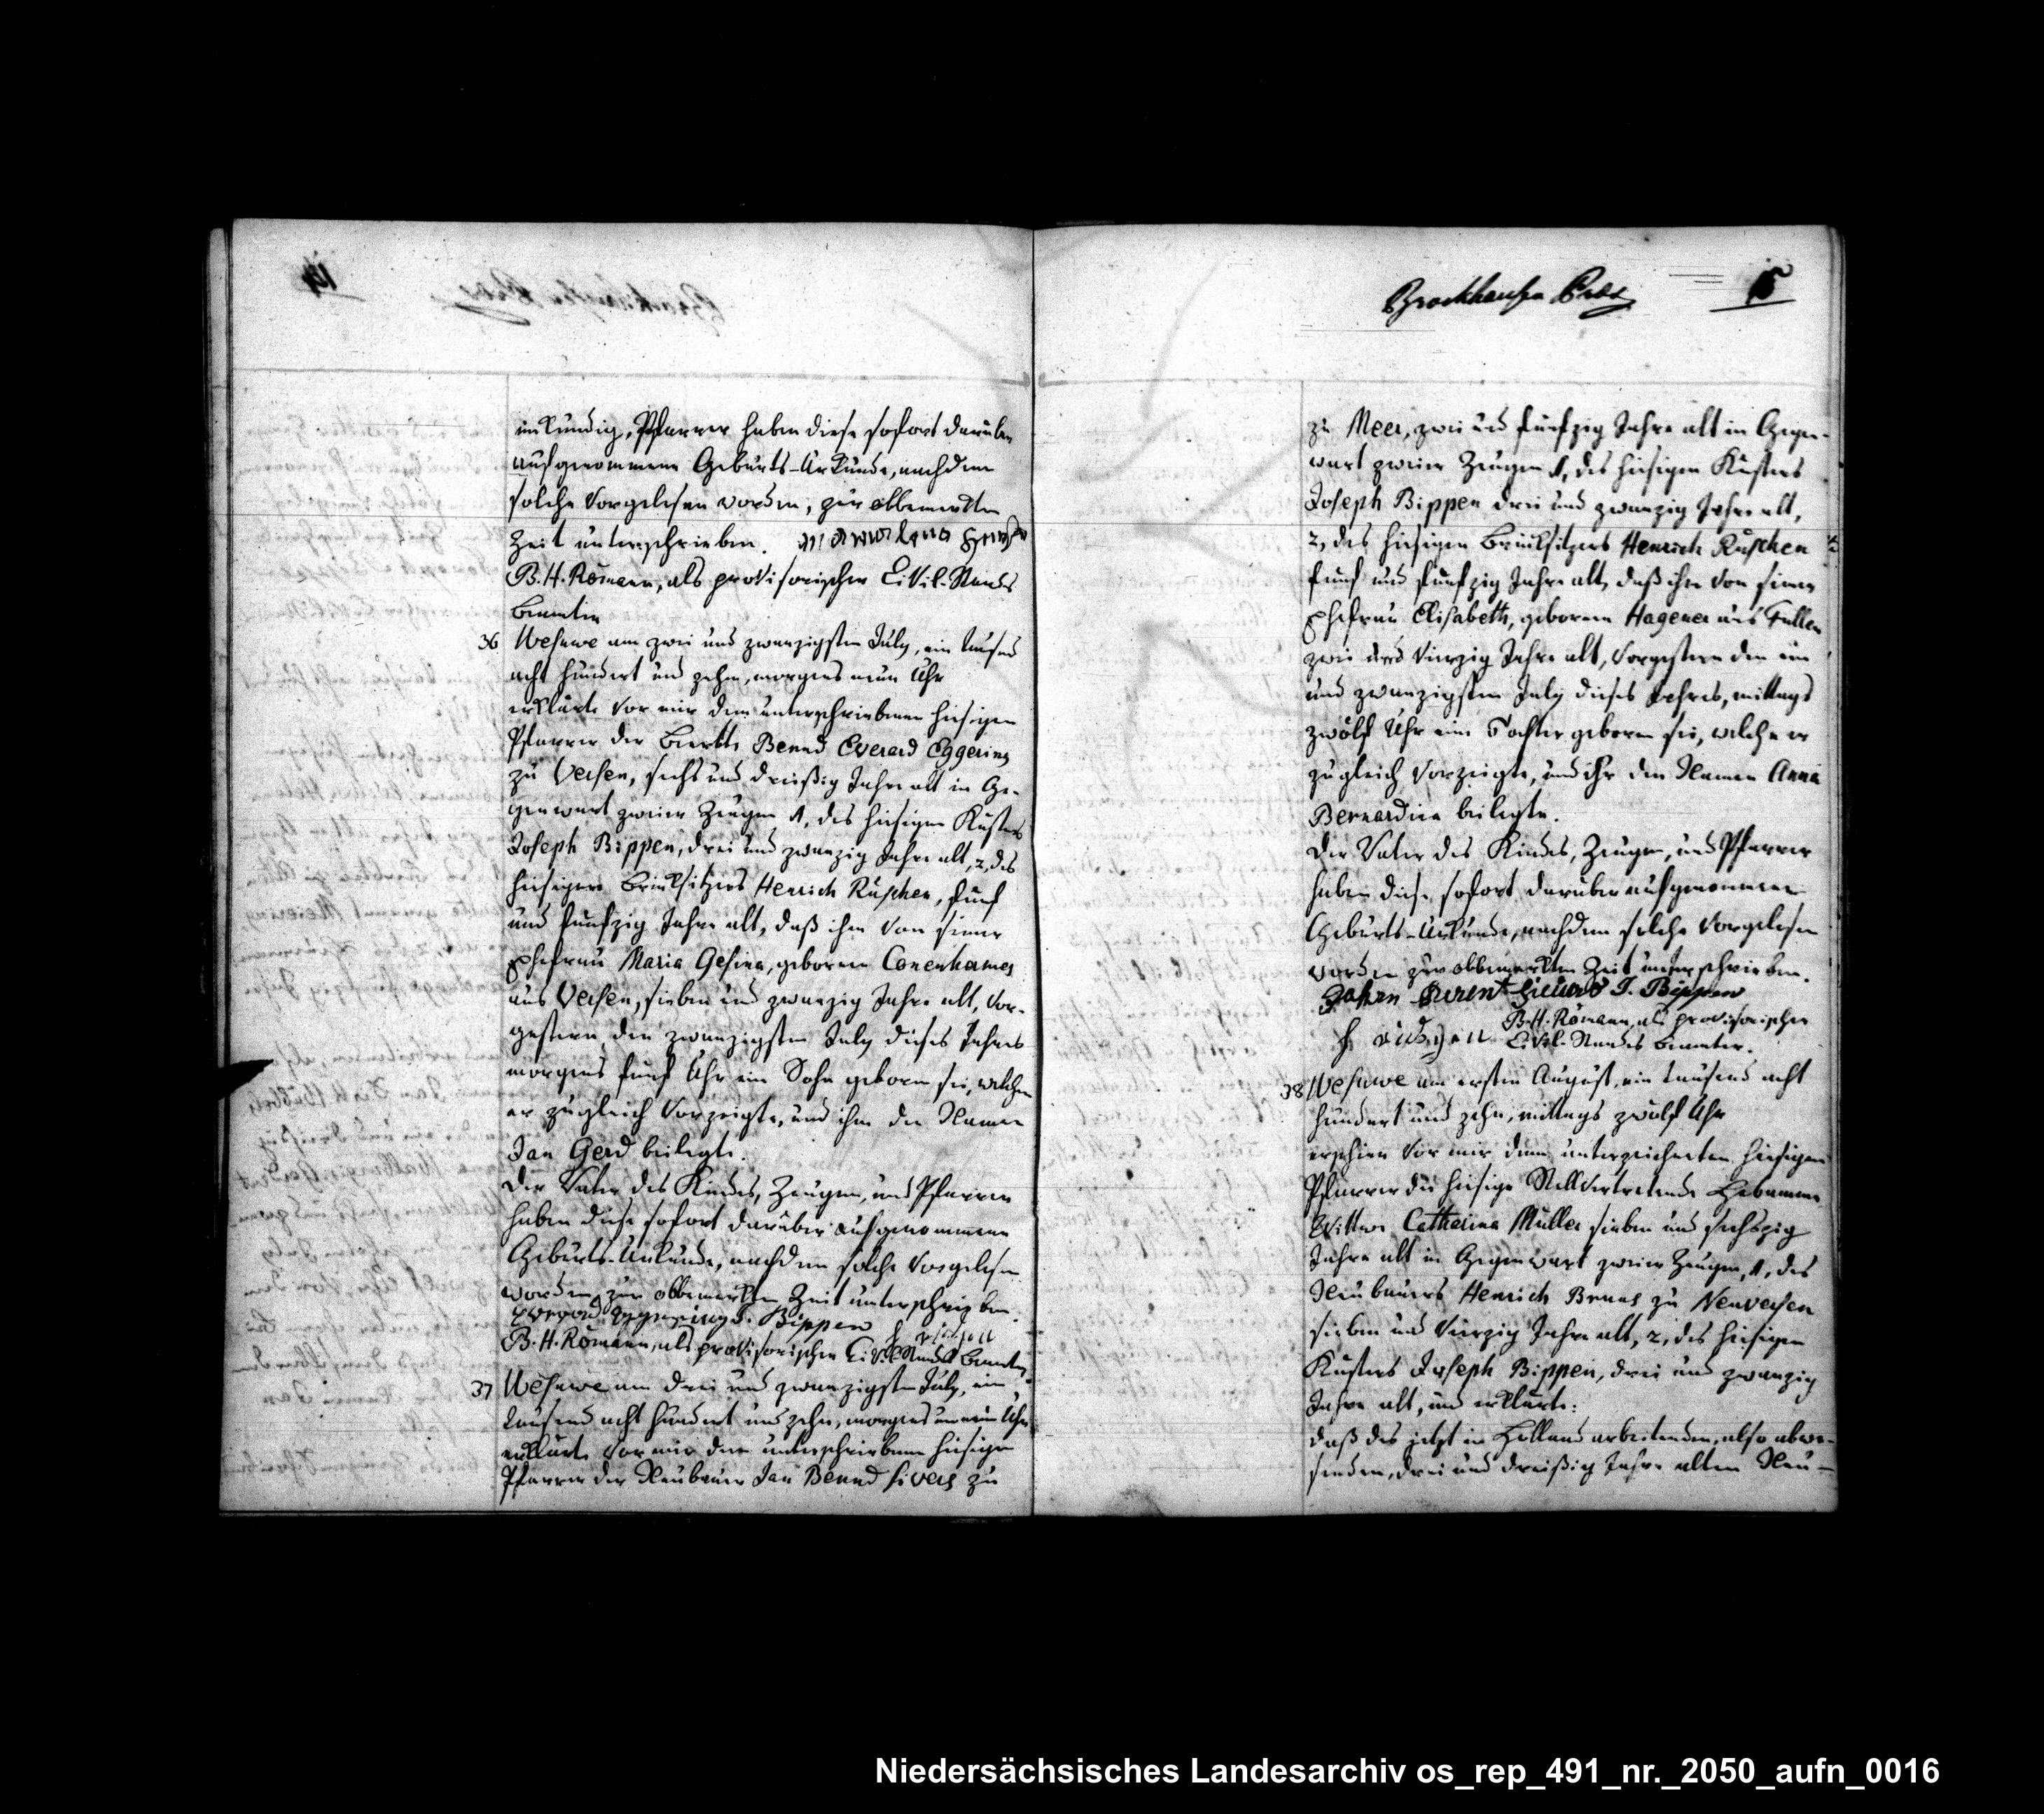 unkundig, Pfarrer haben diese sofort darüber
aufgenommene Geburts-Urkunde, nachdem
solche vorgelesen worden, zur obbemerkten
Zeit unterschrieben.
B. H. Römann, als provisorischer Civil-Stands
Beamter
36 Wesuwe am zwei und zwanzigsten July, ein tausend
acht hundert und zehn, morgens neun Uhr
erklärte vor mir dem unterschriebenen hiesigen
Pfarrer der Bernd Everard Eggering
zu Versen, sechs und dreißig Jahre alt in Ge-
genwart zweier Zeugen 1, des hiesigen Küsters
Joseph Bippen, drei und zwanzig Jahre alt, 2, des
hiesigen Brinksitzers Henrich Rüschen, fünf
und fünfzig Jahre alt, daß ihm von seiner
Ehefrau Maria Gesina, geborene
aus Versen, sieben und zwanzig Jahre alt, vor-
gestern den zwanzigsten July dieses Jahres
morgens fünf Uhr ein Sohn geboren sei, welchen
er zugleich vorzeigte, und ihm den Namen
Jan Gerd beilegte.
Der Vater des Kindes, Zeugen, und Pfarrer
haben diese sofort darüber aufgenommene
Geburts-Urkunde, nachdem solche vorgelesen
worden, zur obbemerkten Zeit unterschrieben.
Everard Eggering J. Bippen
B. H. Römann, als provisorischer Civil-Stands Beamter
37 Wesuwe am drei und zwanzigsten July, ein
tausend acht hundert und zehn, morgens um neun Uhr
erklärte vor mir dem unterschriebenen hiesigen
Pfarrer der Neubauer Jan Bernd Sivers zu
Brockhausen
15
zu Meer, zwei und fünfzig Jahre alt in Gegen-
wart zweier Zeugen 1, des hiesigen Küsters
Joseph Bippen drei und zwanzig Jahre alt,
2, des hiesigen Brinksitzers Henrich Rüschen
fünf und fünfzig Jahre alt, daß ihm von seiner
Ehefrau Elisabeth, geborene Hagener aus Fullen
zwei und vierzig Jahre alt, vorgestern den ein
und zwanzigsten July dieses Jahres, mittags
zwölf Uhr eine Tochter geboren sei, welche er
zugleich vorzeigte, und ihr den Namen Anna
Bernardina beilegte.
Der Vater des Kindes, Zeugen, und Pfarrer
haben diese sofort darüber aufgenommene
Geburts-Urkunde, nachdem solche vorgelesen
worden zur obbemerkten Zeit unterschrieben.
J. Bippen
B. H. Römann, als provisorischer
Civil-Stands Beamter.
38 Wesuwe am ersten August, ein tausend acht
hundert und zehn, mittags zwölf Uhr
erschien vor mir dem unterzeichneten hiesigen
Pfarrer die hiesige stellvertretende Hebamme
Wittwe Catharina Müller sieben und sechszig
Jahre alt in Gegenwart zweier Zeugen, 1, des
Neubauers Henrich Bruns zu Neuversen
sieben und vierzig Jahre alt, 2, des hiesigen
Küsters Joseph Bippen, drei und zwanzig
Jahre alt, und erklärte:
daß des jetzt in Holland arbeitenden, also abwe-
senden, drei und dreißig Jahre alten Neu-
Niedersächsisches Landesarchiv os_rep_491_nr._2050_aufn_0016